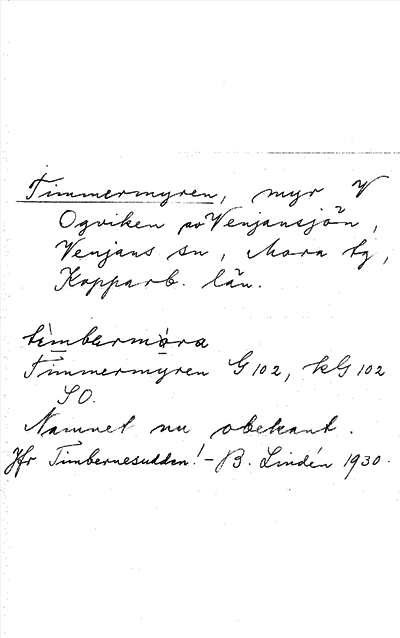 Timmermyren, myr V
Ogviken av Venjansjön,
Venjans sn, Mora tg,
Kopparb. län.
tìmbermöra
Timmermyren G 102, kG 102
SO.
Namnet nu obekant.
Jfr Timbernesudden! - B. Lindén 1930.